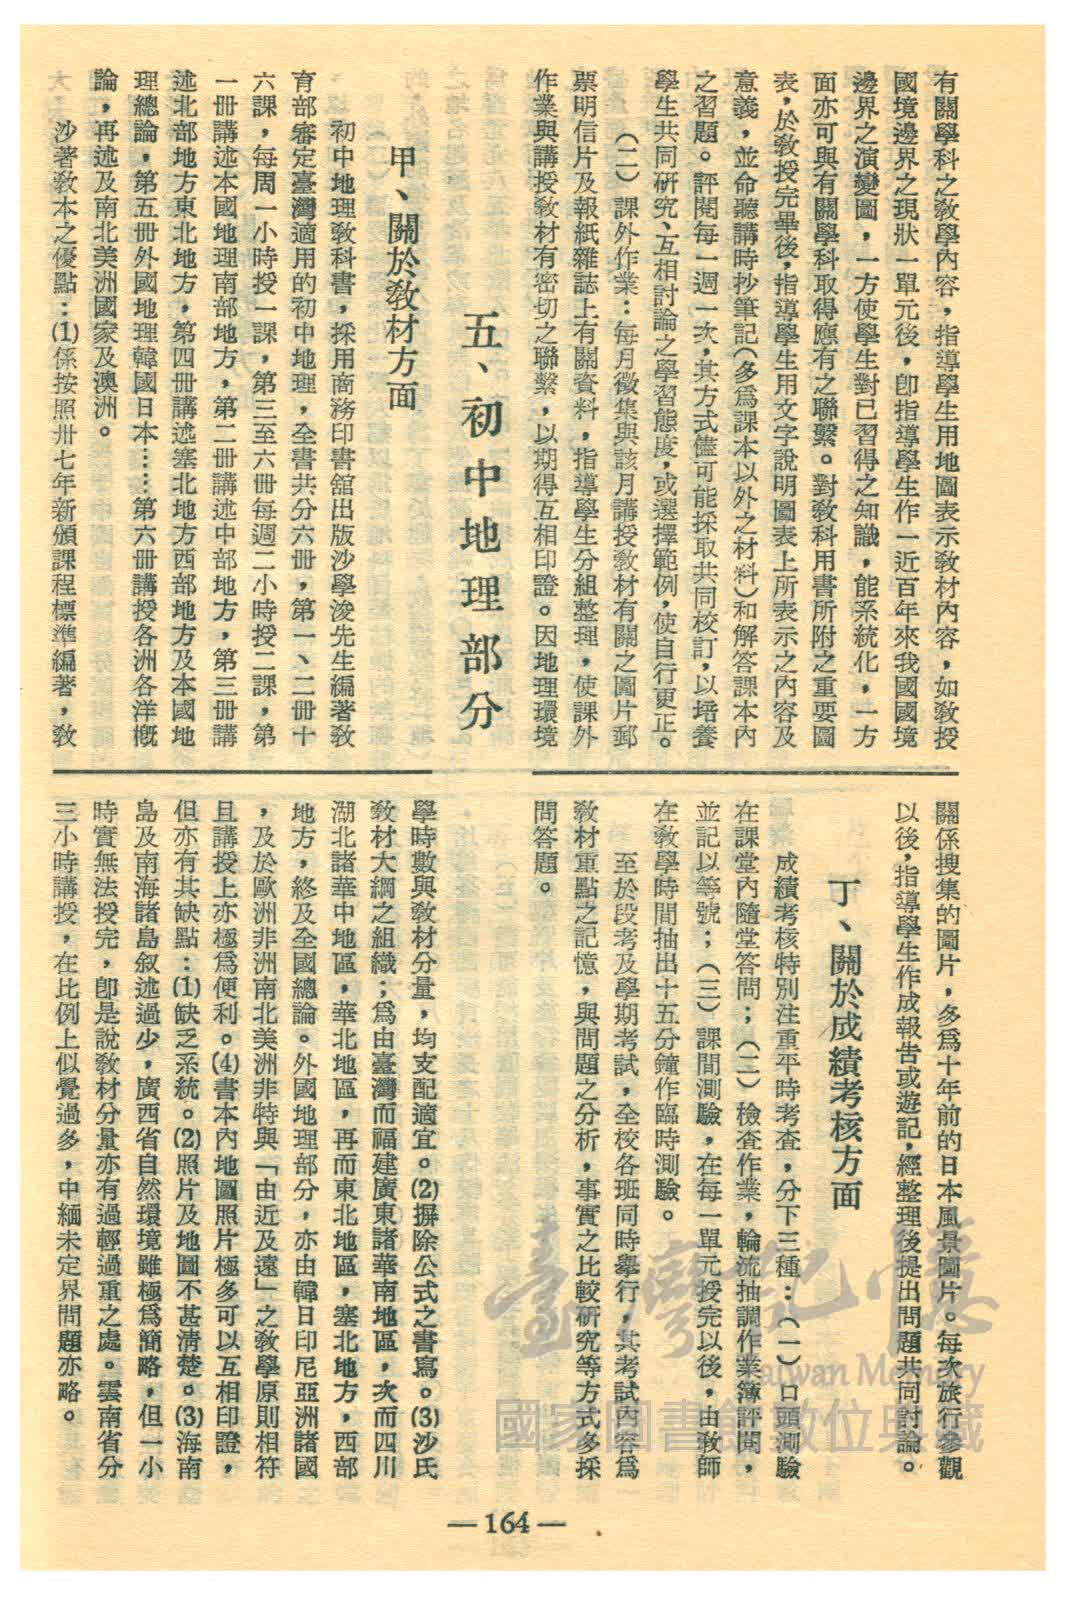 有關學科之敎學內容，指導學生用地圖表示敎材內容，如敎授
國境邊界之現狀一單元後，卽指導學生作一近百年來我國國境
邊界之演變圖，一方使學生對已習得之知識，能系統化，一方
面亦可與有關學科取得應有之聯繫。對敎科用書所附之重要圖
表，於敎授完畢後，指導學生用文字說明圖表上所表示之內容及
意義，並命聽講時抄筆記(多爲課本以外之材料)和解答課本內
之習題。評閱每一週一次，其方式儘可能採取共同校訂，以培養
學生共同硏究、互相討論之學習態度，或選擇範例，使自行更正。
（二）課外作業：每月徵集與該月講授敎材有關之圖片郵
票明信片及報紙雜誌上有關資料，指導學生分組整理，使課外
作業與講授敎材有密切之聯繫，以期得互相印證。因地理環境
關係搜集的圖片，多爲十年前的日本風景圖片。每次旅行參觀
以後，指導學生作成報告或遊記，經整理後提出問題共同討論。
丁、關於成績考核方面
成績考核特別注重平時考査，分下三種：（一）口頭測驗
在課堂內隨堂答問；（二）檢查作業，輪流抽調作業簿評閱，
並記以等號；（三）課間測驗，在每一單元授完以後，由敎師
在敎學時間抽出十五分鐘作臨時測驗。
至於段考及學期考試，全校各班同時擧行，其考試內容爲
敎材重點之記憶，與問題之分析，事實之比較硏究等方式多採
問答題。
五、初中地理部分
甲、關於敎材方面
初中地理敎科書，採用商務印書舘出版沙學浚先生編著敎
育部審定臺灣適用的初中地理，全書共分六册，第一、二册十
六課，每周一小時授一課，第三至六册每週二小時授二課，第
一册講述本國地理南部地方，第二册講述中部地方，第三册講
述北部地方東北地方，第四册講述塞北地方西部地方及本國地
理總論，第五册外國地理韓國日本……第六册講授各洲各洋槪
論，再述及南北美洲國家及澳洲。
沙著敎本之優點：(1)係按照卅七年新頒課程標準編著，敎
學時數與敎材分量，均支配適宜。(2)摒除公式之書寫。(3)沙氏
敎材大綱之組織；爲由臺灣而福建廣東諸華南地區，次而四川
湖北諸華中地區，華北地區，再而東北地區，塞北地方，西部
地方，終及全國總論。外國地理部分，亦由韓日印尼亞洲諸國
，及於歐洲非洲南北美洲非特與「由近及遠」之敎學原則相符
且講授上亦極爲便利。(4)書本內地圖照片極多可以互相印證，
但亦有其缺點：(1)缺乏系統。(2)照片及地圖不甚淸楚。(3)海南
島及南海諸島叙述過少，廣西省自然環境雖極爲簡略，但一小
時實無法授完，卽是說敎材分量亦有過輕過重之處。雲南省分
三小時講授，在比例上似覺過多，中緬未定界問題亦略。
—164—
臺灣記憶
Taiwan Memory
國家圖書館數位典藏